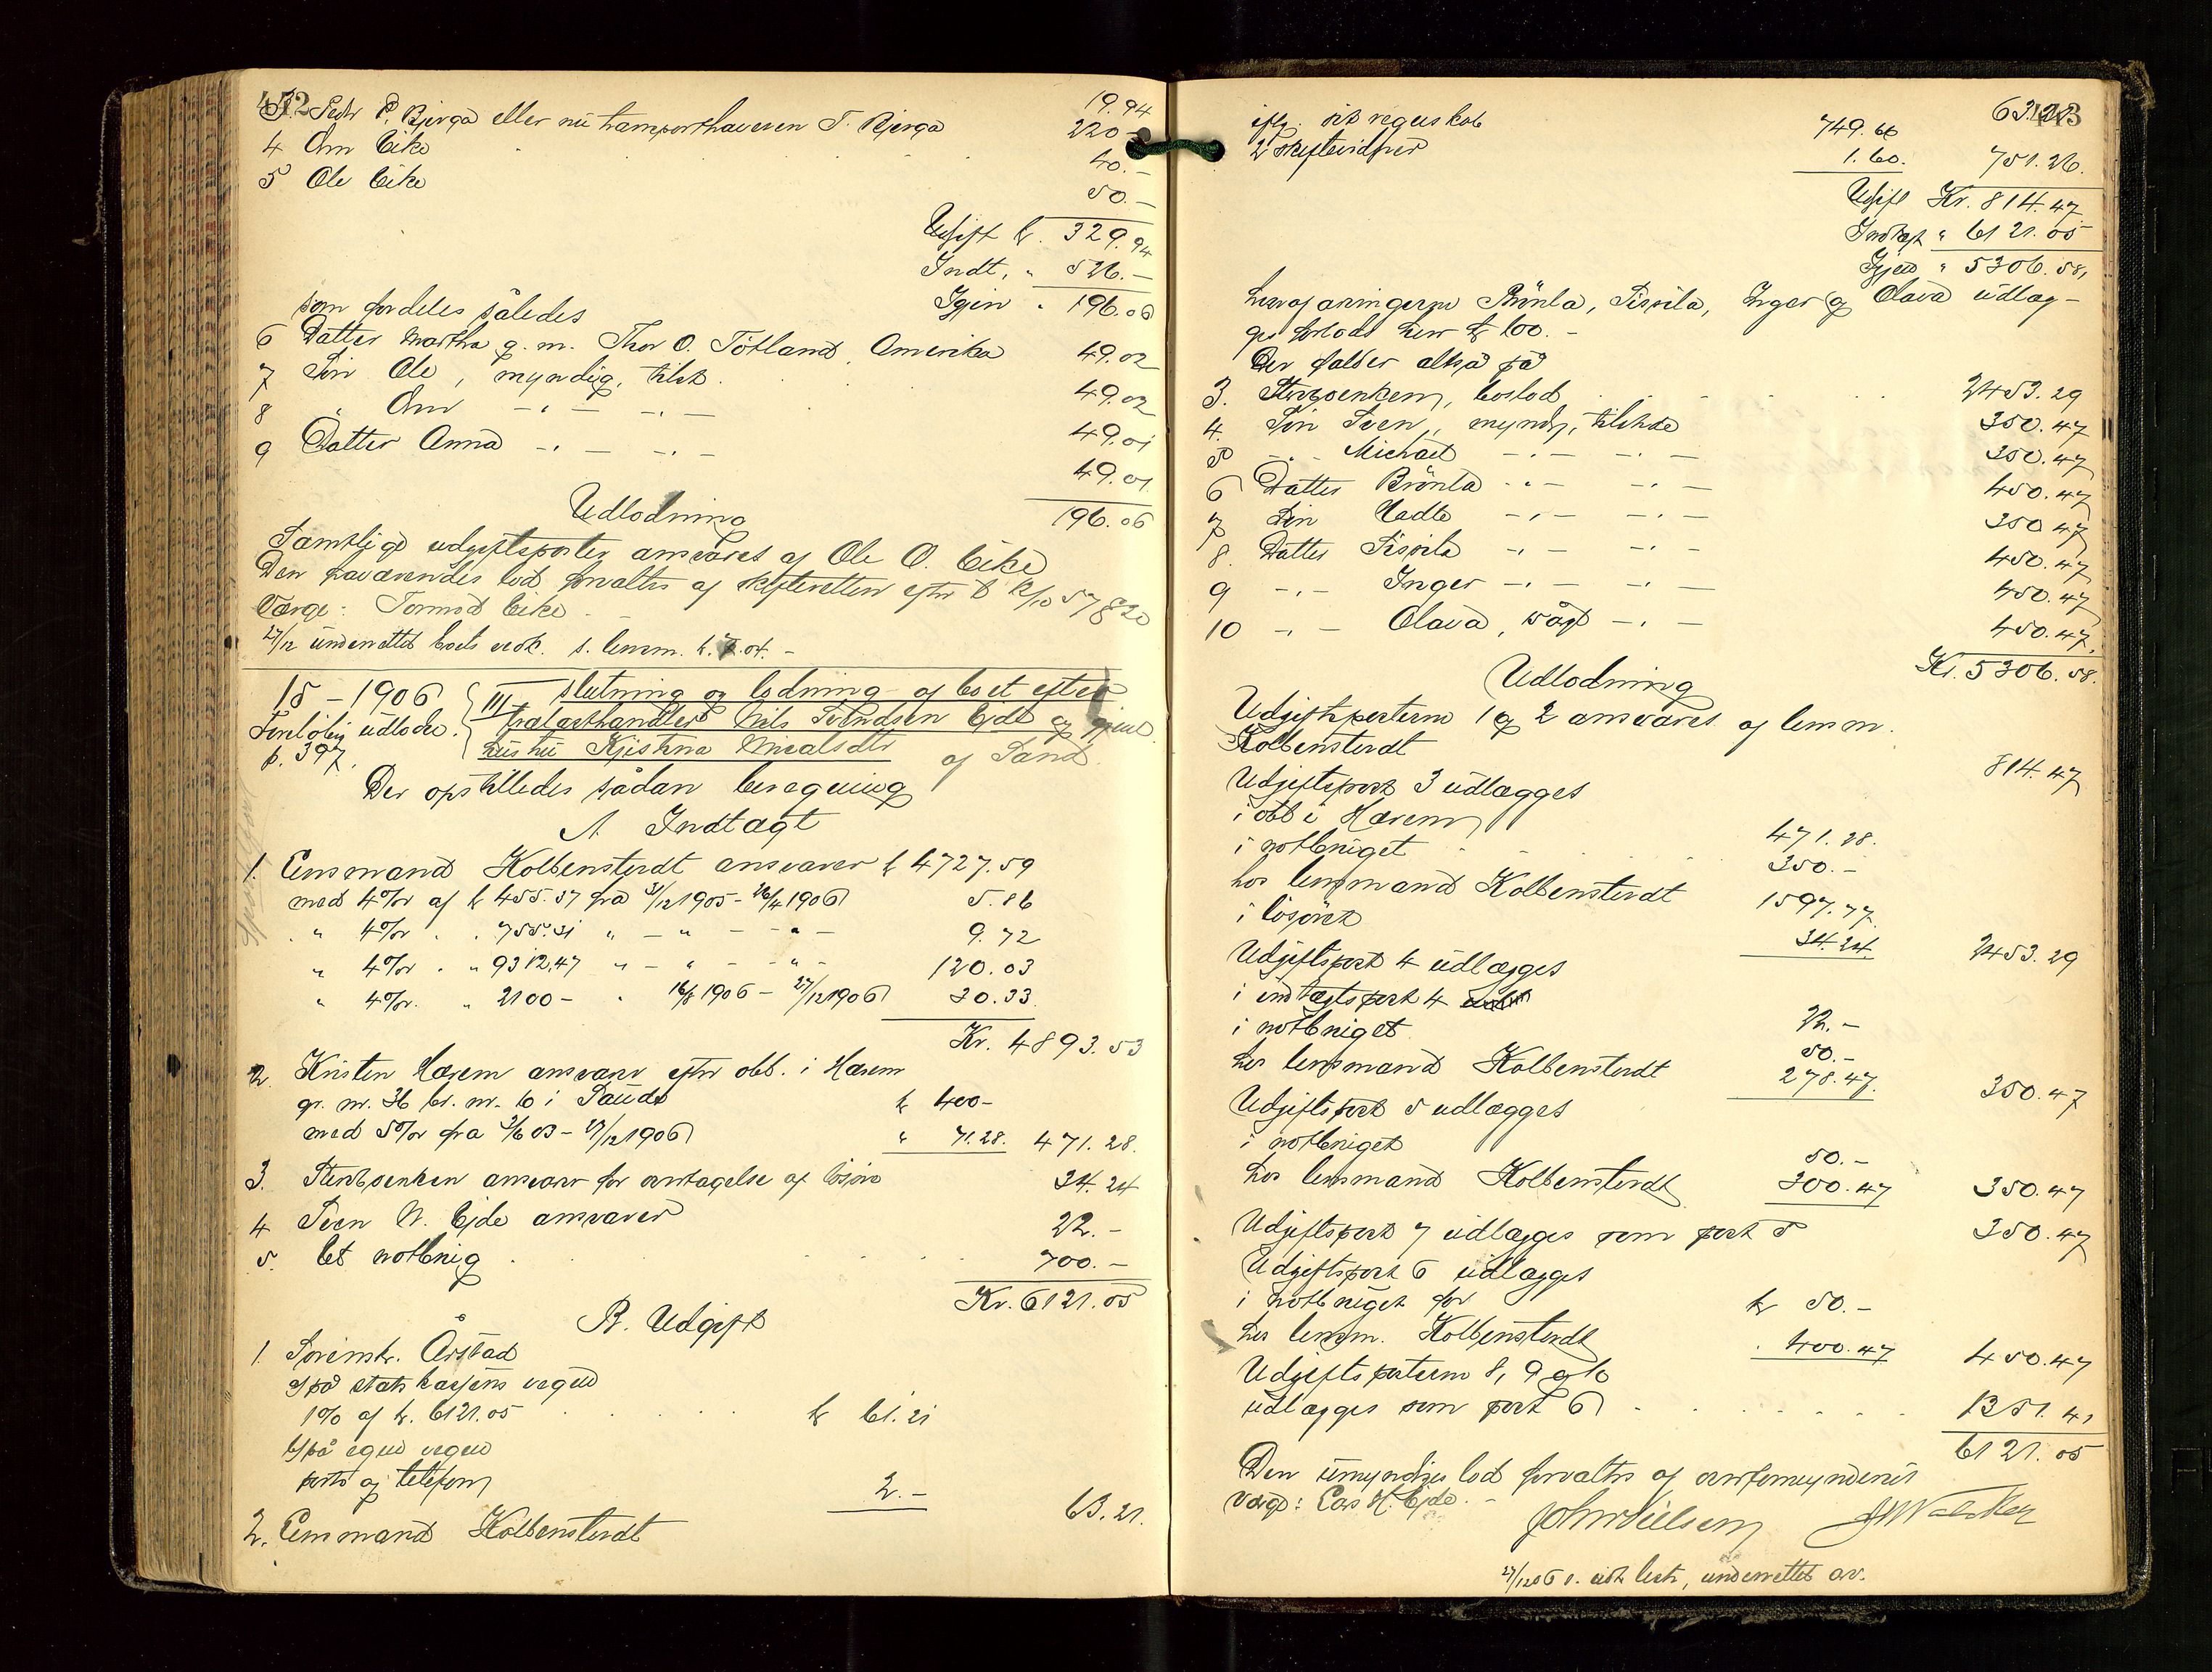 412
19.94
3. P. Bjerga eller nu transporthaveren T. Bjerga 220 -
4 Om Eike 40. -
5 Ole Eike 50. -
Udgift kr. 329.94
Indt. " 526. -
Igjen " 196.06
som fordeles således
6 Datter Martha g. m. Thor O. Tötland, Amerika 49.02
7 Sön Ole, myndig, tilst. 49.02
8 " Om - " - - " - 49.01
9 Datter Anna - " - - " - 49.01
196.06
Udlodning
Samtlige udgiftsposter ansvares af Ole O. Eike
Den fraværendes lod forvaltes af skifteretten efter
Værge: Tormod Eike
27/12 underrettet boets vedk.
15 - 1906
Foreløbig udlodn.
p. 397.
III Slutning og lodning af boet efter
trælasthandler Nils Svendsen Eide og gjenl.
hustru Kjistina Micalsdtr af Sand.
Der opstilledes sådan beregning
A. Indtægt
1. Lensmand Kolbenstvedt ansvarer k 4727.59
med 4% af k 455.37 fra 31/12 1905 - 26/4 1906 5.86
" 4% " " 755.31 " - " - - " - 9.72
" 4% " " 9312.47 " - " - - " - 120.03
" 4% " " 2100 - " 16/8 1906 - 27/12 1906 30.33
Kr. 4893.53
2. Kristen Hærem ansvarer efter obl. i Hærem
gr. nr. 36 br. nr. 6 i Saude k 400 -
med 5% fra 3/6 03 - 27/12 1906 " 71.28. 471.28.
3. Sterboenken ansvarer for overtagelse af lösöre 34.24
4 Sven N. Eide ansvarer 22. -
5. Et notbrug 700. -
Kr. 6121.05
B. Udgift
1. Sorenskr. Årstad
a/ på statskassens vegne
1% af k. 6121.05 k 61.21
b/ på egne vegne
porto og telefon 2. -
63.21.
2. Lensmand Kolbenstvedt
413
63.21
iflg. sit regnskab 749.66
2 skiftevidner 1.60. 751.26.
Udgift Kr. 814.47
Indtægt " 6121.05
Igjen " 5306.58,
heraf arvingerne Brönla, Sissila, Inger og Olava udlæg-
ges forlods hver k 100. -
Der falder altså på
3. Sterboenken, boslod 2453.29
4. Sön Sven, myndig, tilstede 350.47
5 - " - Michael - " - - " - 350.47
6 Datter Brönla - " - - " - 450.47
7 Sön Vadle - " - - " - 350.47
8. Datter Sissila - " - - " - 450.47
9 - " - Inger - " - - " - 450.47
10 - " - Olava, - " - 450.47,
Kr. 5306.58.
Udlodning
Udgiftsposterne 1 og 2 ansvares af lensm.
Kolbenstvedt 814.47
Udgiftspost 3 udlægges
i obl. i Hærem 471.28.
i notbruget 350. -
hos lensmand Kolbenstvedt 1597.77.
i lösöret 34.24. 2453.29
Udgiftspost 4 udlægges
i indtægtspost 4 22. -
i notbruget 50. -
hos lensmand Kolbenstvedt 278.47. 350.47
Udgiftspost 5 udlægges
i notbruget 50. -
hos lensmand Kolbenstvedt 300.47 350.47
Udgiftspost 7 udlægges som post 5 350.47
Udgiftspost 6 udlægges
i notbruget for kr 50. -
hos lensm. Kolbenstvedt " 400.47 450.47
Udgiftsposterne 8, 9 og 10
udlægges som post 6 1351.41
6121.05
Den umyndiges lod forvaltes af overformynderiet
Værge: Lars N. Eide. -
John Nielsen
27/12 06 underrettet ov.